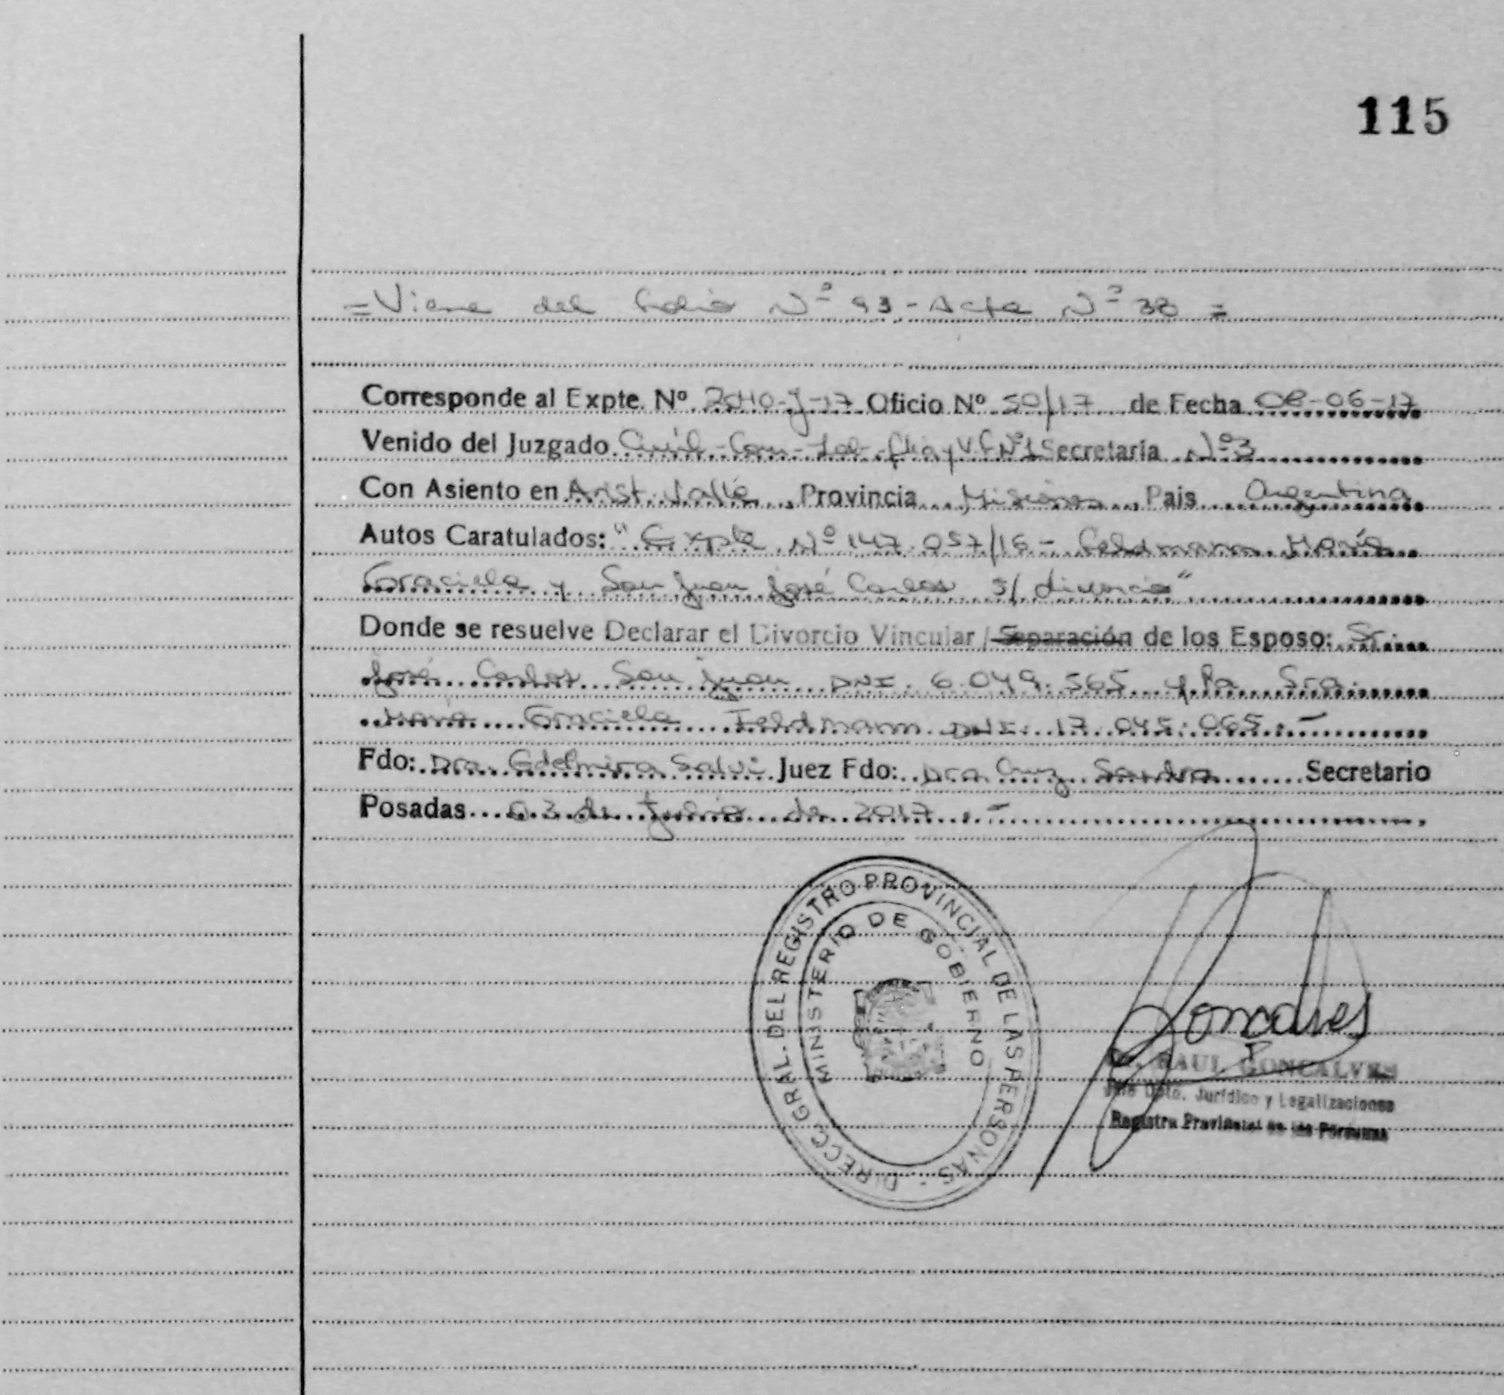 115
= Viene del Folio Nº 93 - Acta Nº 38 =
Corresponde al Expte. Nº 2040-J-17 Oficio Nº 50/17 de Fecha 08-06-17
Venido del Juzgado Civil-Com-Lab-Flia y V.F Nº1 Secretaria Nº3
Con Asiento en Arist. Valle, Provincia Misiones, Pais Argentina
Autos Caratulados: "Expte Nº 147.057/16 - Feldmann María
Graciela y San Juan José Carlos s/ divorcio"
Donde se resuelve Declarar el Divorcio Vincular / Separación de los Esposo: Sr.
José Carlos San Juan DNI. 6.049.565 y la Sra.
María Graciela Feldmann DNI. 17.045.065.-
Fdo: Dra. Edelmira Salvi Juez Fdo: Dra Cruz Sandra Secretario
Posadas 03 de Julio de 2017.-
DIRECC. GRAL. DEL REGISTRO PROVINCIAL DE LAS PERSONAS
MINISTERIO DE GOBIERNO
Goncalves
Dr. RAUL GONCALVES
Jefe Dpto. Jurídico y Legalizaciones
Registro Provincial de las Personas